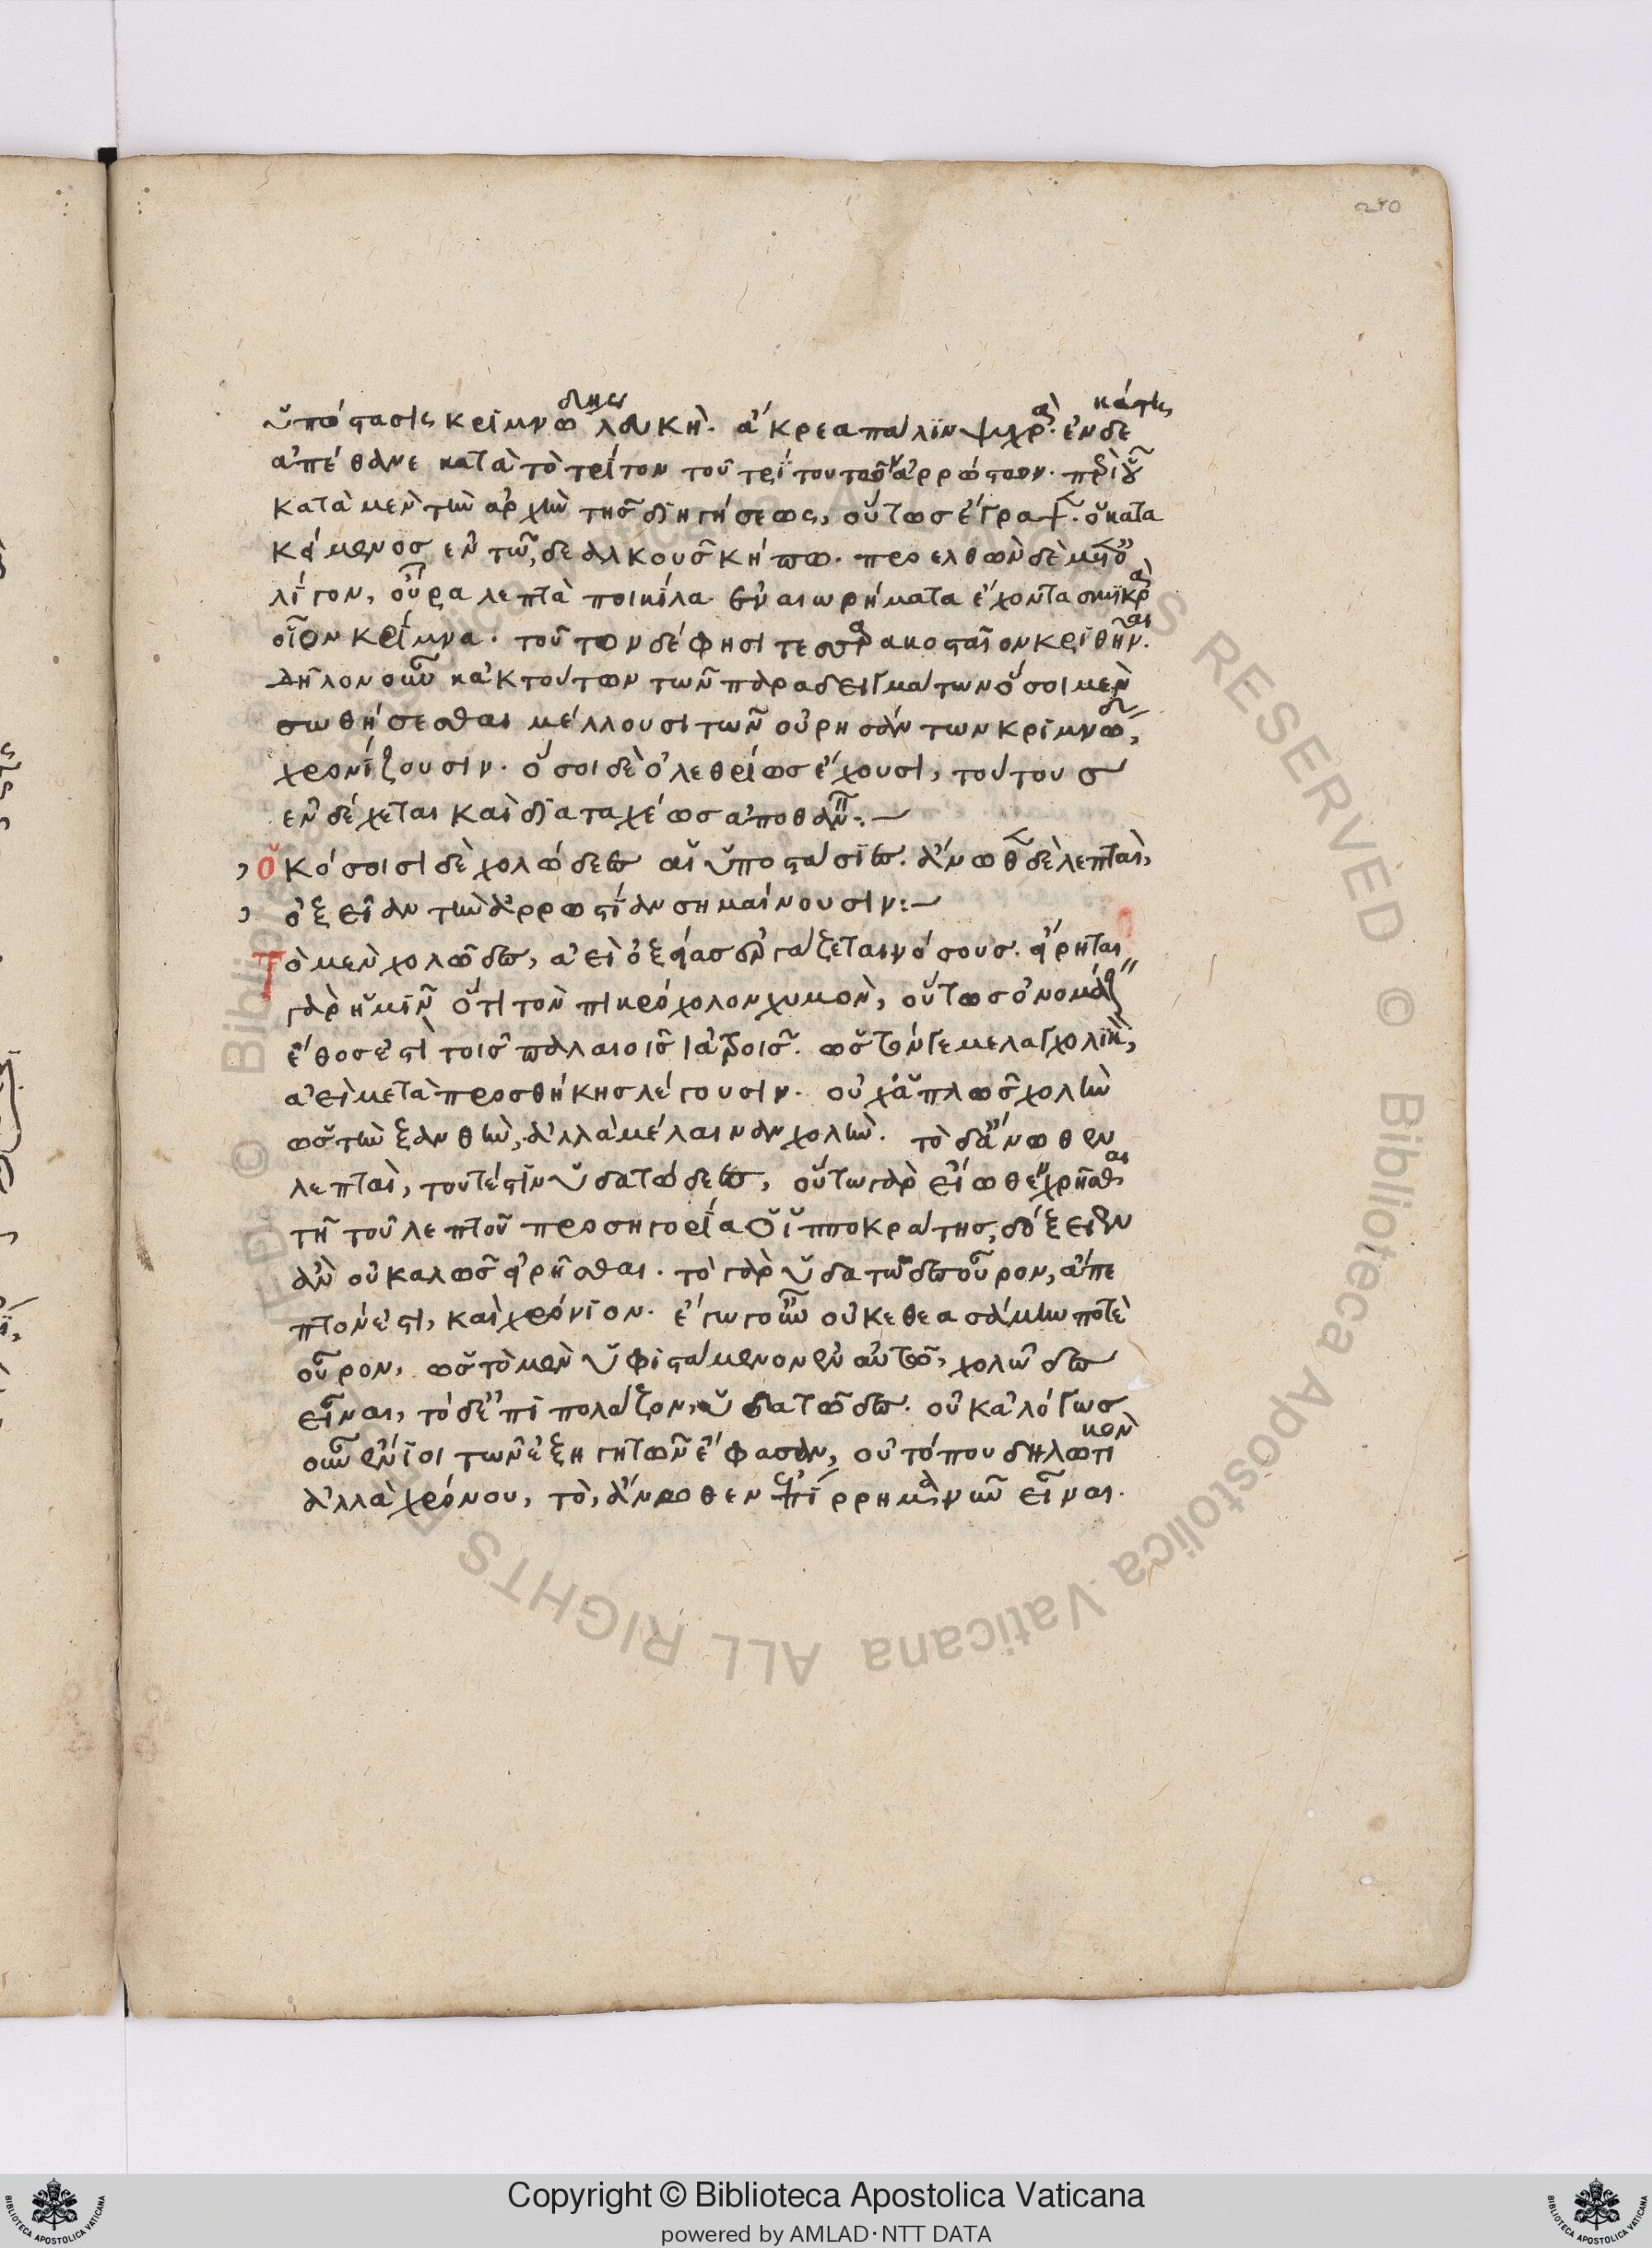 240
ὑπόστασις κριμνώδης λευκή. ἄκρεα πάλιν ψυχρά. ἑνδεκάτῃ
ἀπέθανε κατὰ τὸ τρίτον τοῦ τρίτου τῶν ἀρρώστων. περὶ οὗ
κατὰ μὲν τὴν ἀρχὴν τῆς διηγήσεως, οὕτως ἔγραψεν. ὁ κατα
κείμενος ἐν τῷ δεαλκους κήπῳ. προελθὼν δὲ μετ' ὀ
λίγον, οὖρα λεπτὰ ποικίλα ἐναιωρήματα ἔχοντα σμικρὰ
οἷον κρίμνα. τοῦτον δέ φησι τεσσαρακοσταῖον κριθῆναι.
δῆλον οὖν κἀκ τούτων τῶν παραδειγμάτων ὅσοι μὲν
σωθήσεσθαι μέλλουσι τῶν οὐρησάντων κριμνώδη,
χρονίζουσιν. ὅσοι δὲ ὀλεθρίως ἔχουσι, τούτους
ἐνδέχεται καὶ διαταχέως ἀποθανεῖν:
ὁκόσοισι δὲ χολώδεες αἱ ὑποστάσιες. ἄνωθεν δὲ λεπταὶ,
ὀξεῖαν τὴν ἀρρωστίαν σημαίνουσιν:
Τὸ μὲν χολῶδες, ἀεὶ ὀξείας ἐργάζεται νόσους. εἴρηται
γὰρ ἡμῖν ὅτι τὸν πικρόχολον χυμὸν, οὕτως ὀνομάζειν
ἔθος ἐστὶ τοῖς παλαιοῖς ἰατροῖς. ὡς τόν γε μελαγχολικὸν,
ἀεὶ μετὰ προσθήκης λέγουσιν. οὐχ ἁπλῶς χολὴν
ὡς τὴν ξανθὴν, ἀλλὰ μέλαιναν χολήν. τὸ δ' ἄνωθεν
λεπταὶ, τουτέστιν ὑδατώδεες, οὕτω γὰρ εἴωθε χρῆσθαι
τῇ τοῦ λεπτοῦ προσηγορίᾳ ὁ ἱπποκράτης, δόξειεν
ἂν οὐ καλῶς εἰρῆσθαι. τὸ γὰρ ὑδατῶδες οὖρον, ἄπε
πτόν ἐστι, καὶ χρόνιον. ἐγὼ γοῦν οὐκ ἐθεασάμην ποτὲ
οὖρον, ὡς τὸ μὲν ὑφιστάμενον ἐν αὐτῷ, χολῶδες
εἶναι, τὸ δ' ἐπιπολάζον, ὑδατῶδες. οὐκ ἀλόγως
οὖν ἔνιοι τῶν ἐξηγητῶν ἔφασαν, οὐ τόπου δηλωτικὸν
ἀλλὰ χρόνου, τὸ, ἄνωθεν ἐπίρρημα νῦν εἶναι.
Copyright © Biblioteca Apostolica Vaticana
powered by AMLAD·NTT DATA